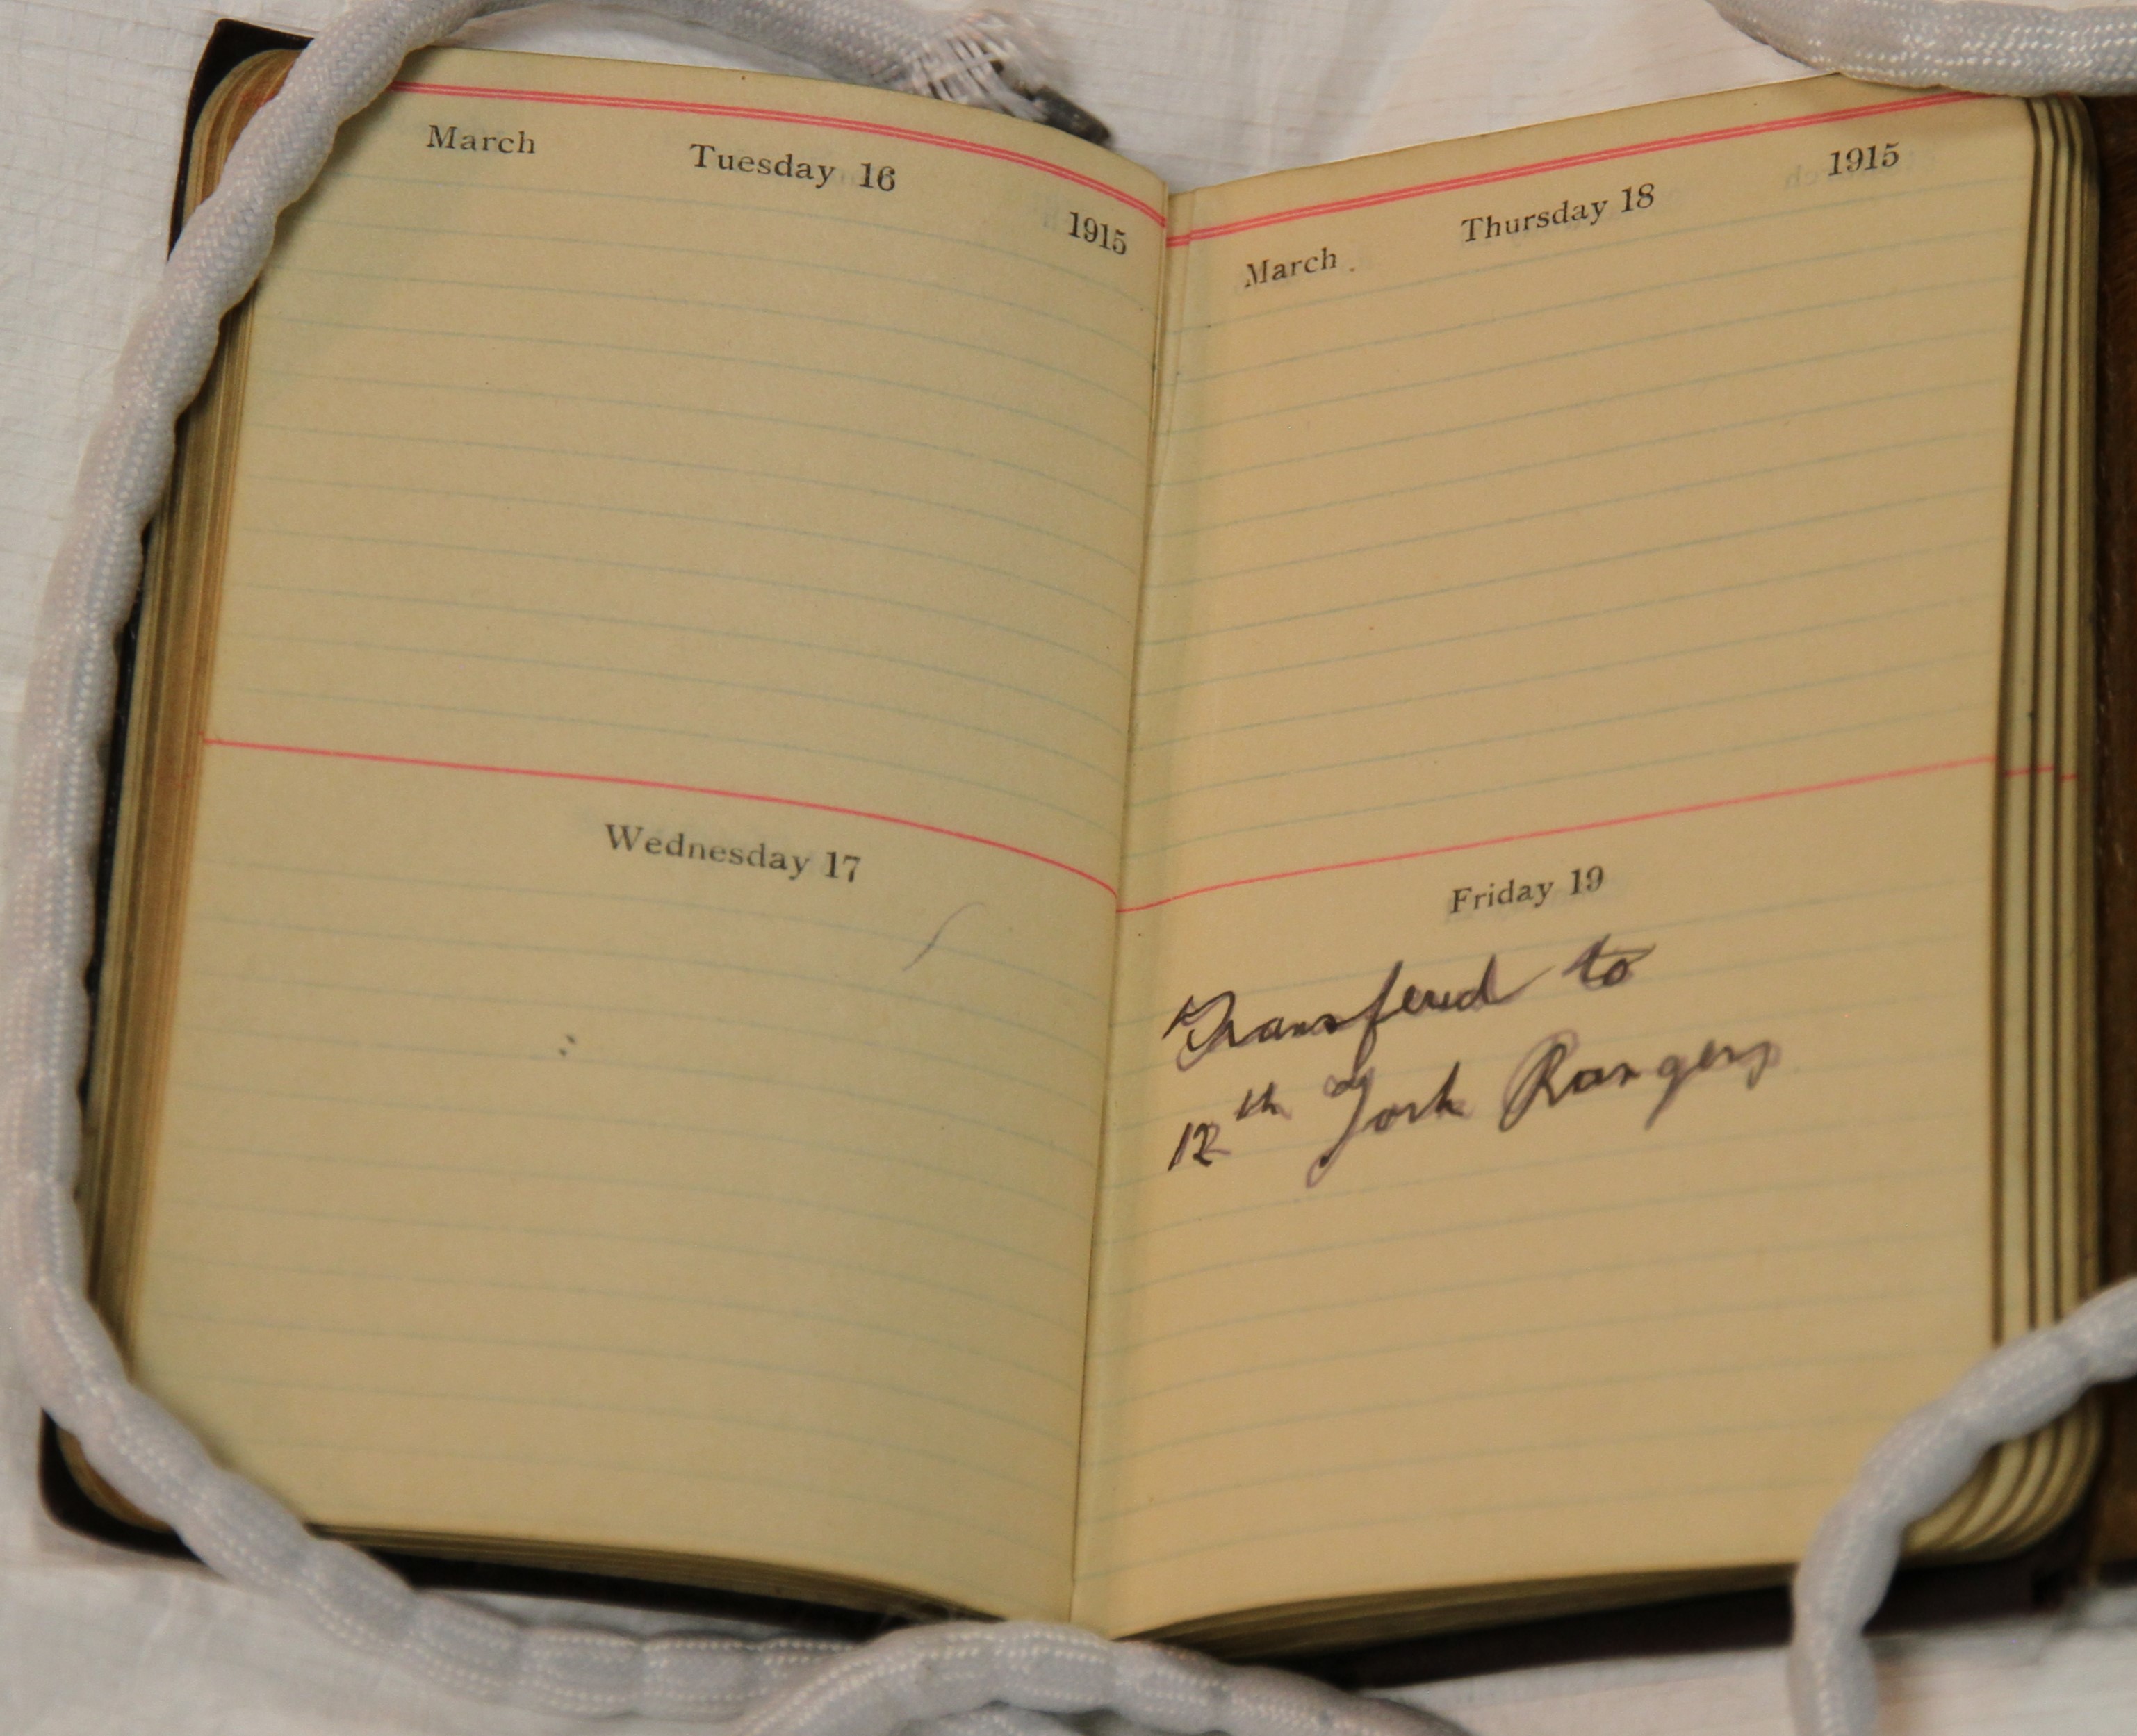 March Tuesday 16 1915
Wednesday 17
March Thursday 18 1915
Friday 19
Transfered to
12th York Rangers